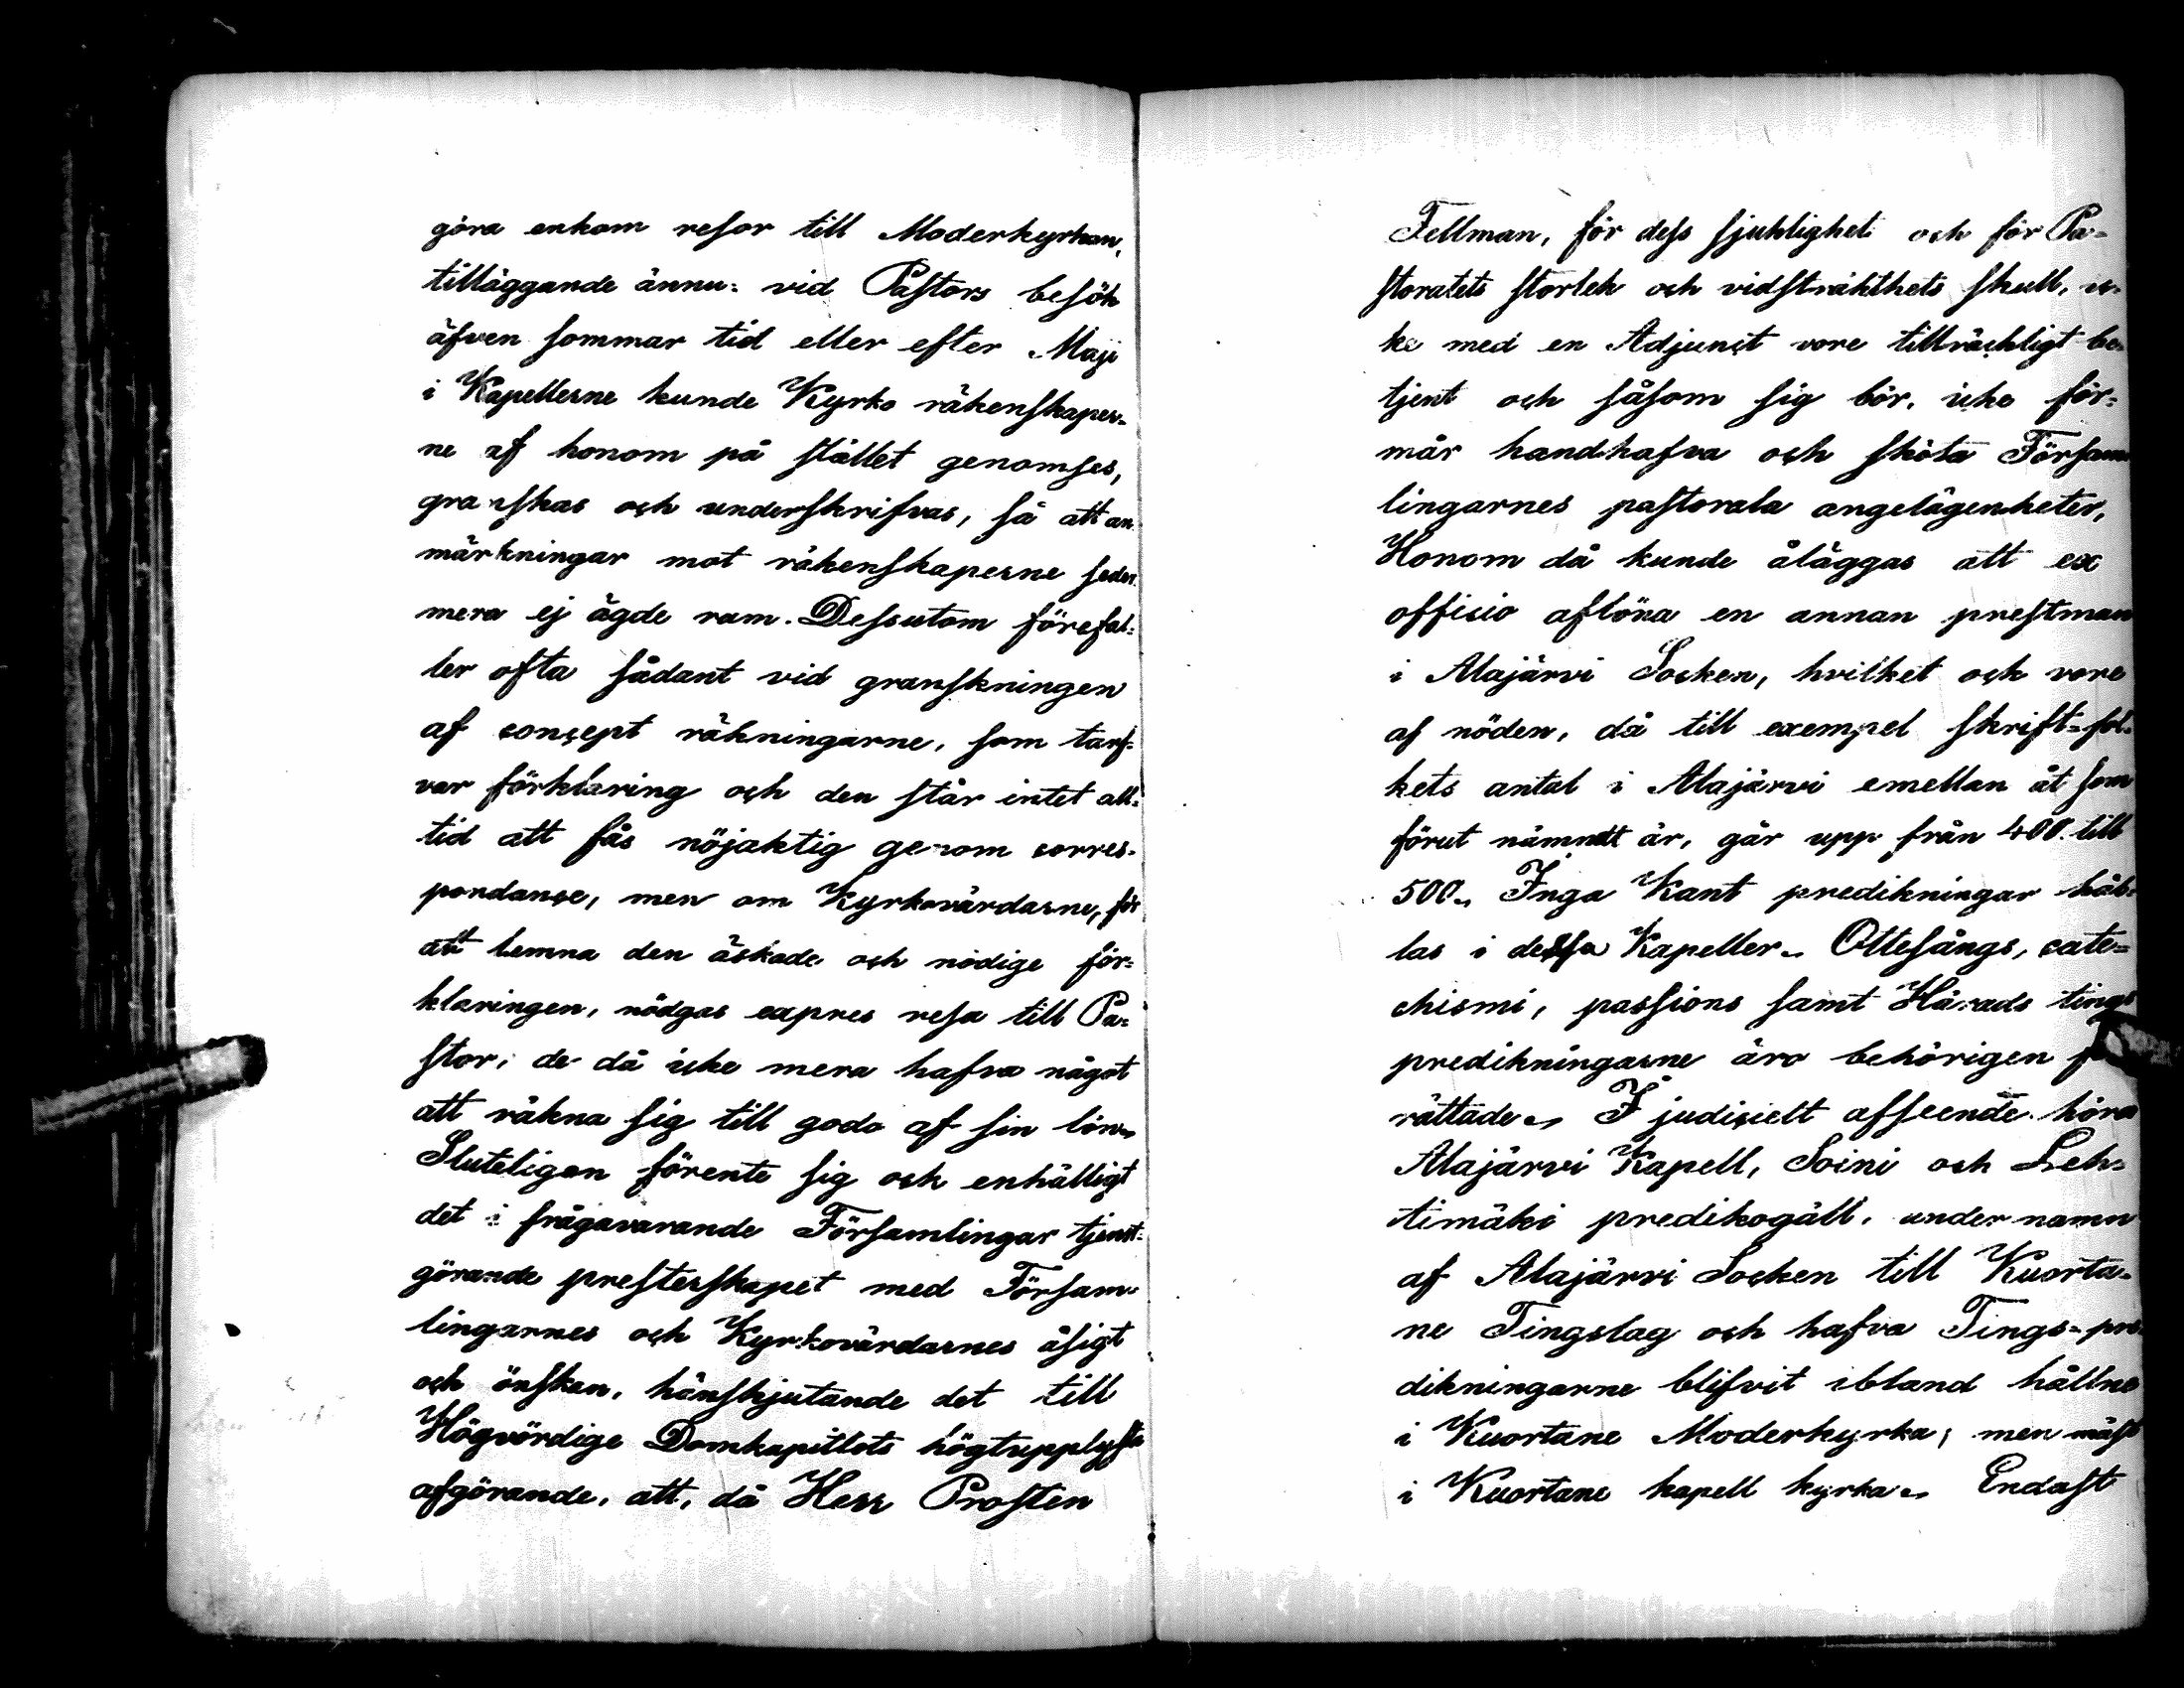 göra enkom resor till Moderkyrkan,
tilläggande ännu: vid Pastors besök
äfven sommar tid eller efter Maji
i Kapellerne kunde Kyrko räkenskaper-
ne af honom på stället genomses,
granskas och underskrifvas, så att an-
märkningar mot räkenskaperne seder-
mera ej ägde rum. Dessutom förefal-
ler ofta sådant vid granskningen
af concept räkningarne, som tarf-
var förklaring och den står intet all-
tid att fås nöjaktig genom corres-
pondance, men om Kyrkovärdarne, för
att lemna den äskade och nödige för-
klaringen, nödgas expres resa till Pa-
stor, de då icke mera hafva något
att räkna sig till godo af sin lön.
Sluteligen förente sig och enhälligt
det i frågavarande Församlingar tjenst-
görande presterskapet med Försam-
lingarnes och Kyrkovärdarnes åsigt
och önskan, hänskjutande det till
Högvördige Domkapitlets högtupplysta
afgörande, att, då Herr Prosten
Fellman, för dess sjuklighet och för Pa-
storatets storlek och vidsträkthets skull, ic-
ke med en Adjunct vore tillräckligt be-
tjent och såsom sig bör, icke för-
mår handhafva och sköta Försam-
lingarnes pastorala angelägenheter,
Honom då kunde åläggas att ex
officio aflöna en annan prestman
i Alajärvi Socken, hvilket och vore
af nöden, då till exempel skrift-fol-
kets antal i Alajärvi emellan åt som
förut nämndt är, går upp från 400. till
500. Inga Kant predikningar hål-
las i dessa Kapeller. Ottesångs, cate-
chismi, passions samt Härads tings
predikningarne äro behörigen
rättade. I judicielt afseende höra
Alajärvi Kapell, Soini och Leh-
timäki predikogäll, under namn
af Alajärvi Socken till Kuorta-
ne Tingslag och hafva Tings-pre-
dikningarne blifvit ibland hållne
i Kuortane Moderkyrka, men mäst
i Kuortane kapell kyrka. Endast